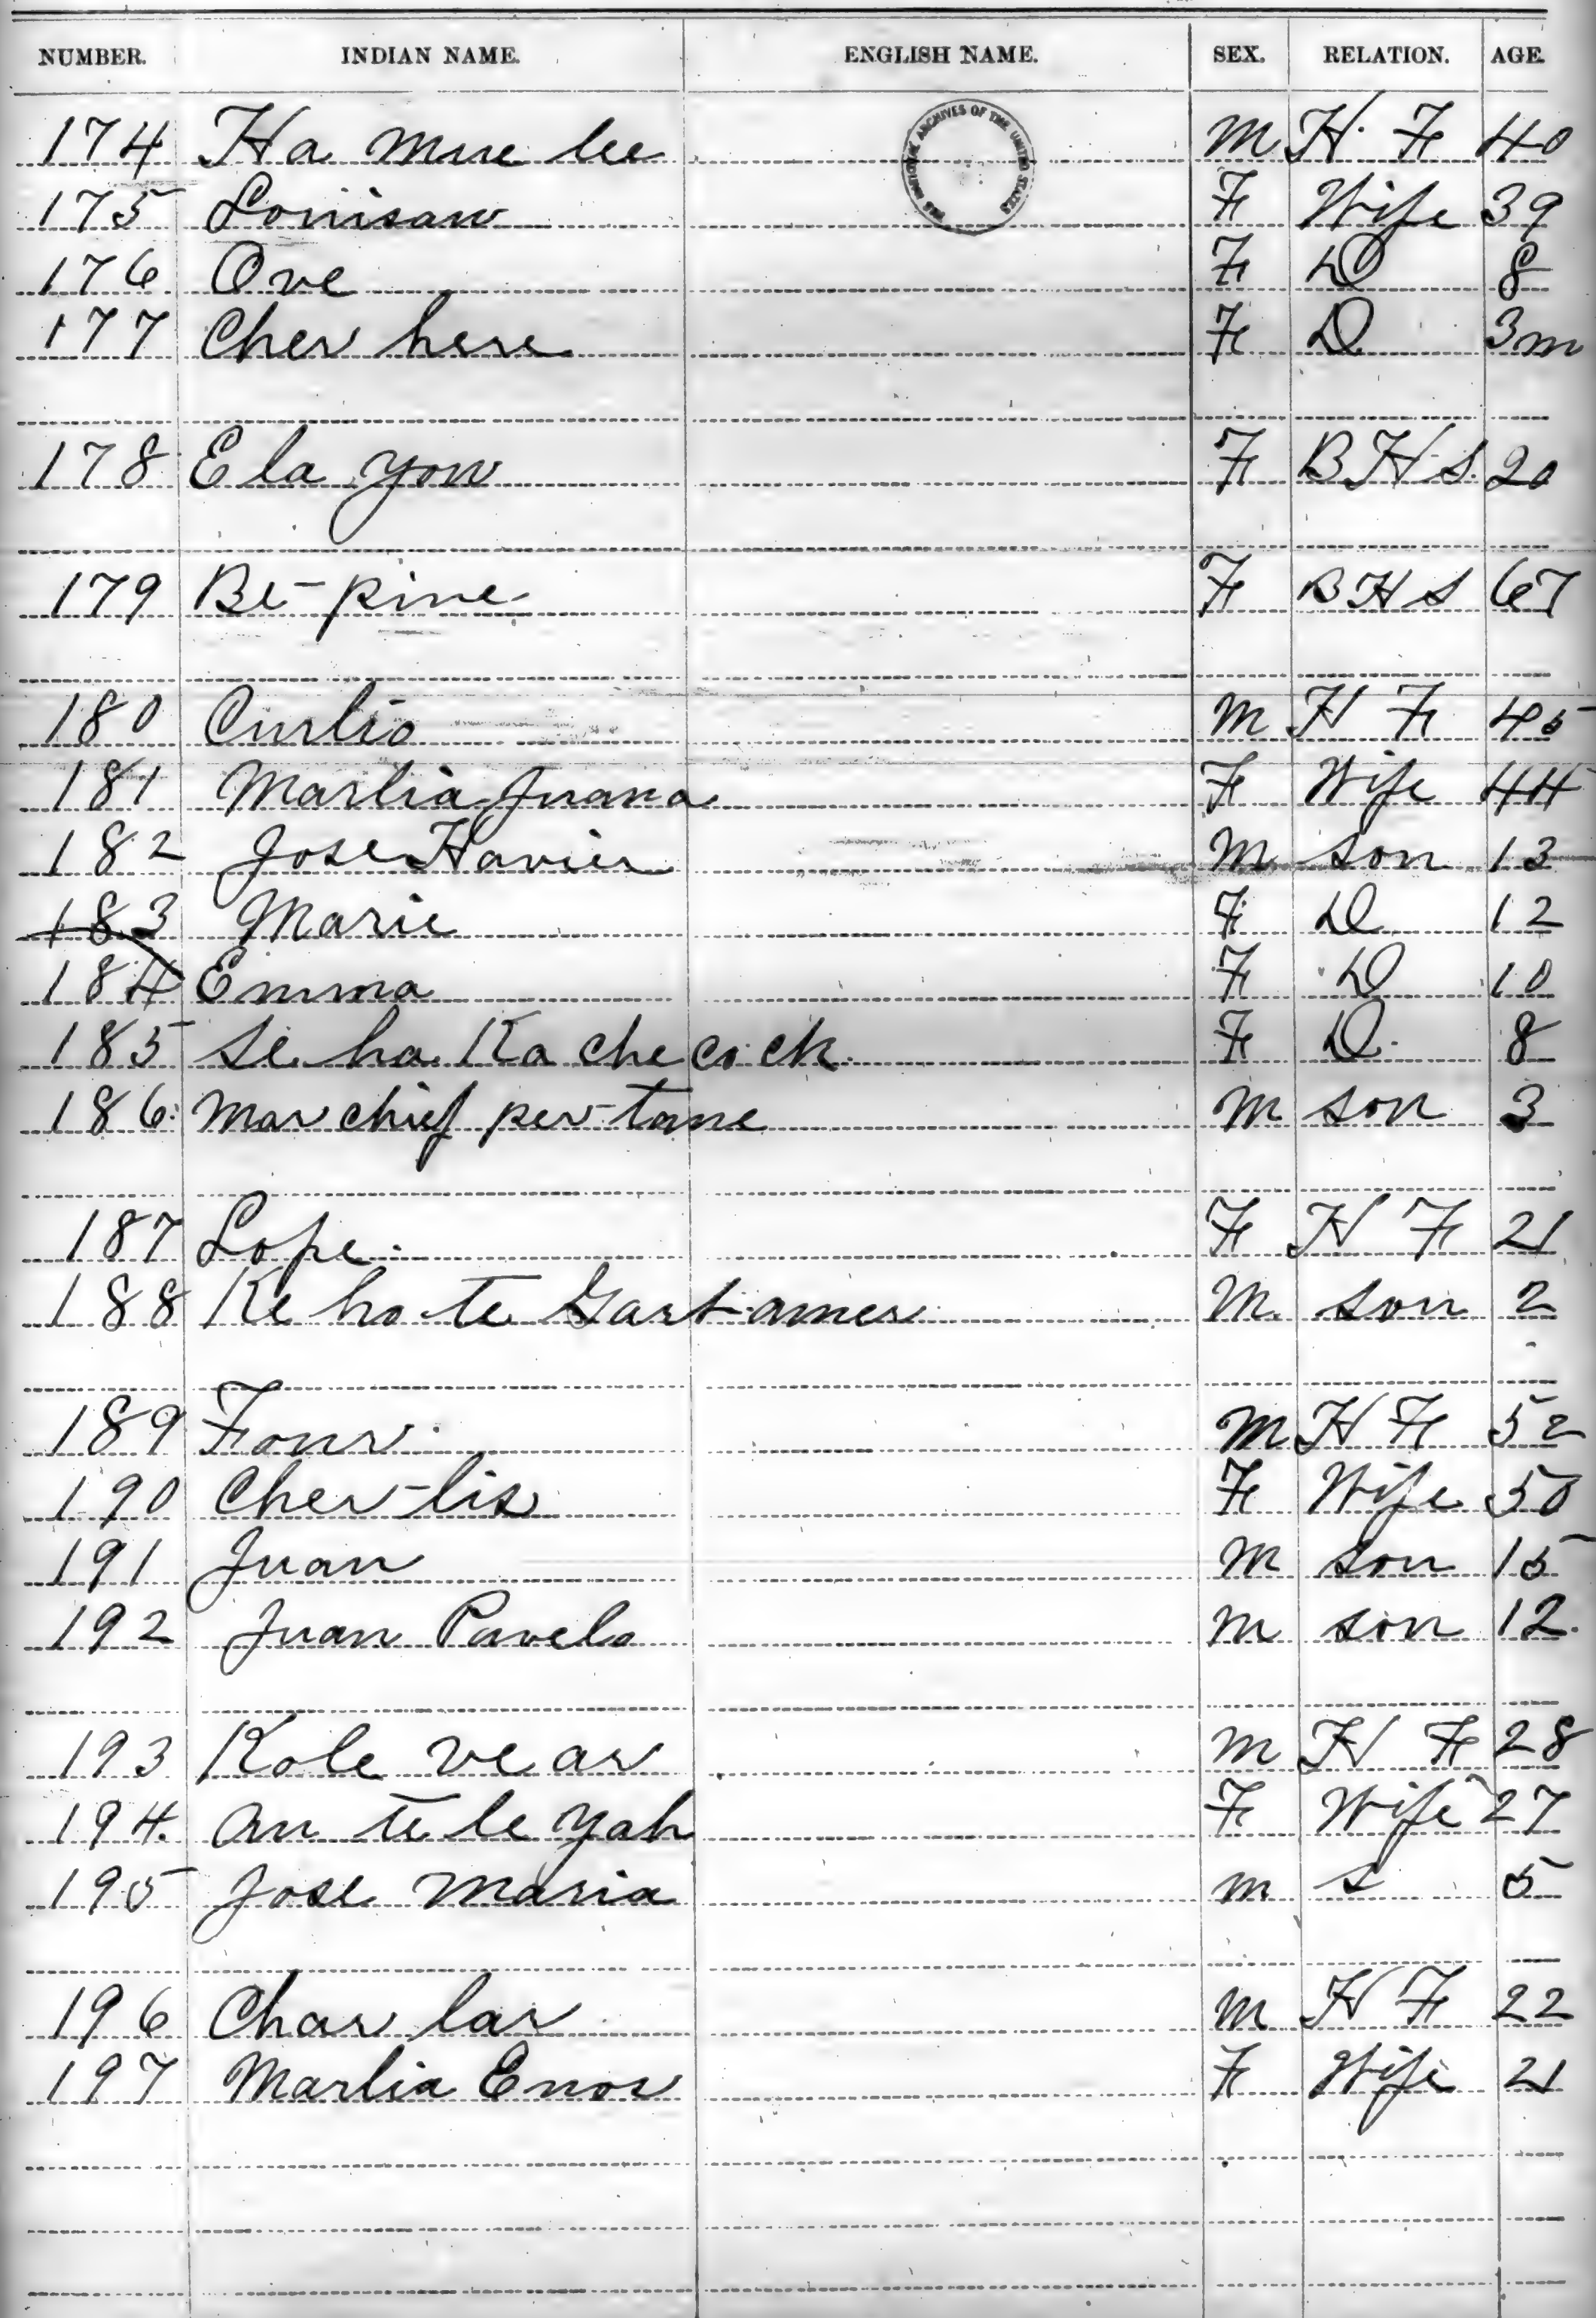 NUMBER. INDIAN NAME. ENGLISH NAME. SEX. RELATION. AGE.
THE NATIONAL ARCHIVES OF THE UNITED STATES
174 Ha mue lee M H. F 40
175 Louisaw F Wife 39
176 Ove F D 8
177 Cher here F D 3m
178 Ela yow F B H S. 20
179 Be-pine F B H S 67
180 Curlio M H F 45
181 Marlia Juana F Wife 44
182 Jose Havier M son 13
183 Marie F D 12
184 Emma F D 10
185 Se ha Ka che cock F D. 8
186 Mar chief per-tane M son 3
187 Lope F H F 21
188 Ke ho-te Gart-ames M. son 2
189 Fons M H F 52
190 Cher-lis F Wife 50
191 Juan M son 15
192 Juan Pavelo M son 12.
193 Kole ve as M H F 28
194. An te le yah F Wife 27
195 Jose Maria M S 5
196 Char lar M H F 22
197 Marlia Enos F Wife 21